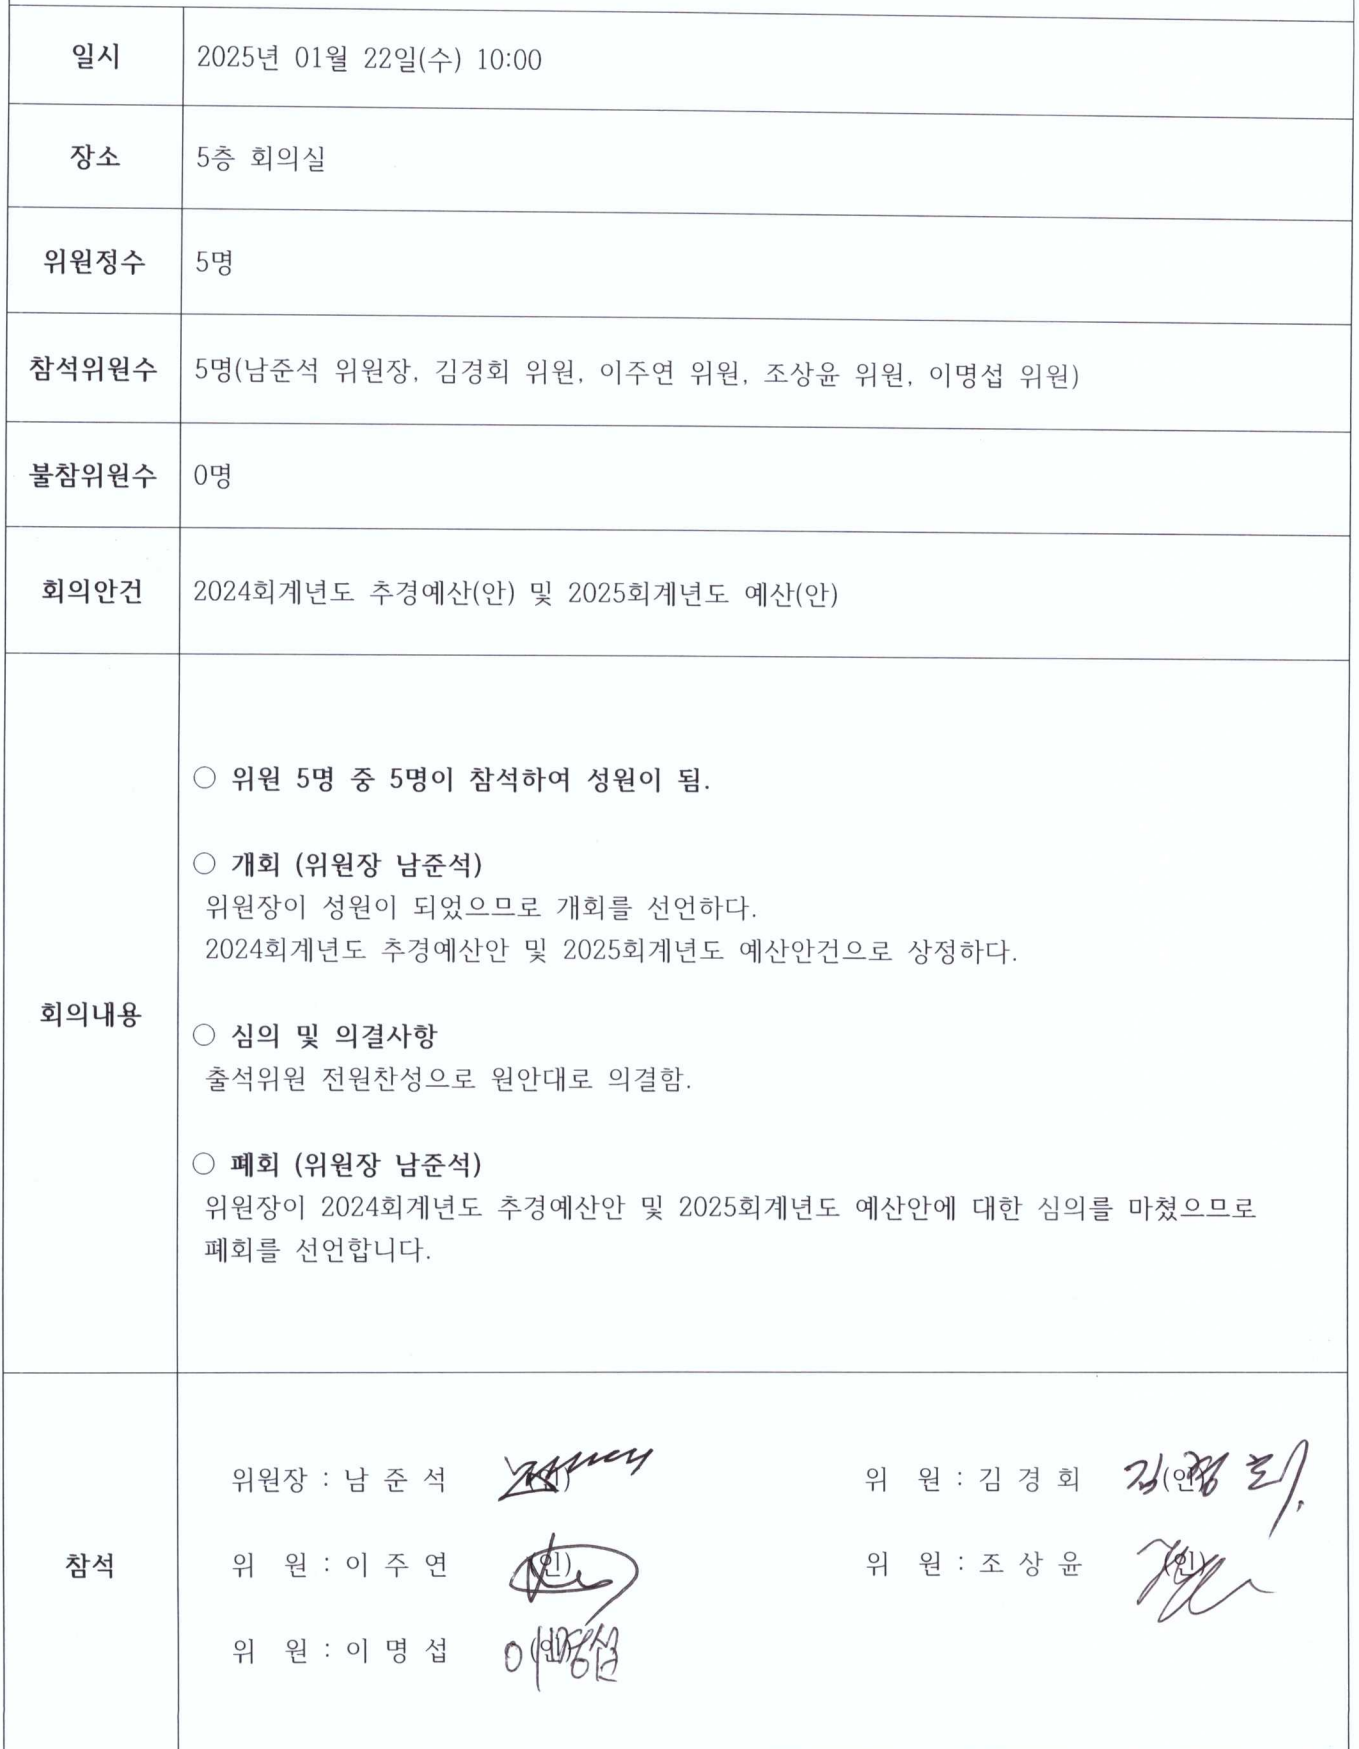 일시 2025년 01월 22일(수) 10:00
장소 5층 회의실
위원정수 5명
참석위원수 5명(남준석 위원장, 김경회 위원, 이주연 위원, 조상윤 위원, 이명섭 위원)
불참위원수 0명
회의안건 2024회계년도 추경예산(안) 및 2025회계년도 예산(안)
○ 위원 5명 중 5명이 참석하여 성원이 됨.
○ 개회 (위원장 남준석)
위원장이 성원이 되었으므로 개회를 선언하다.
2024회계년도 추경예산안 및 2025회계년도 예산안건으로 상정하다.
회의내용
○ 심의 및 의결사항
출석위원 전원찬성으로 원안대로 의결함.
○ 폐회 (위원장 남준석)
위원장이 2024회계년도 추경예산안 및 2025회계년도 예산안에 대한 심의를 마쳤으므로
폐회를 선언합니다.
위원장 : 남 준 석 (인) 위 원 : 김 경 회 (인) 김경회
참석
위 원 : 이 주 연 (인) 위 원 : 조 상 윤 (인)
위 원 : 이 명 섭 (인) 이명섭